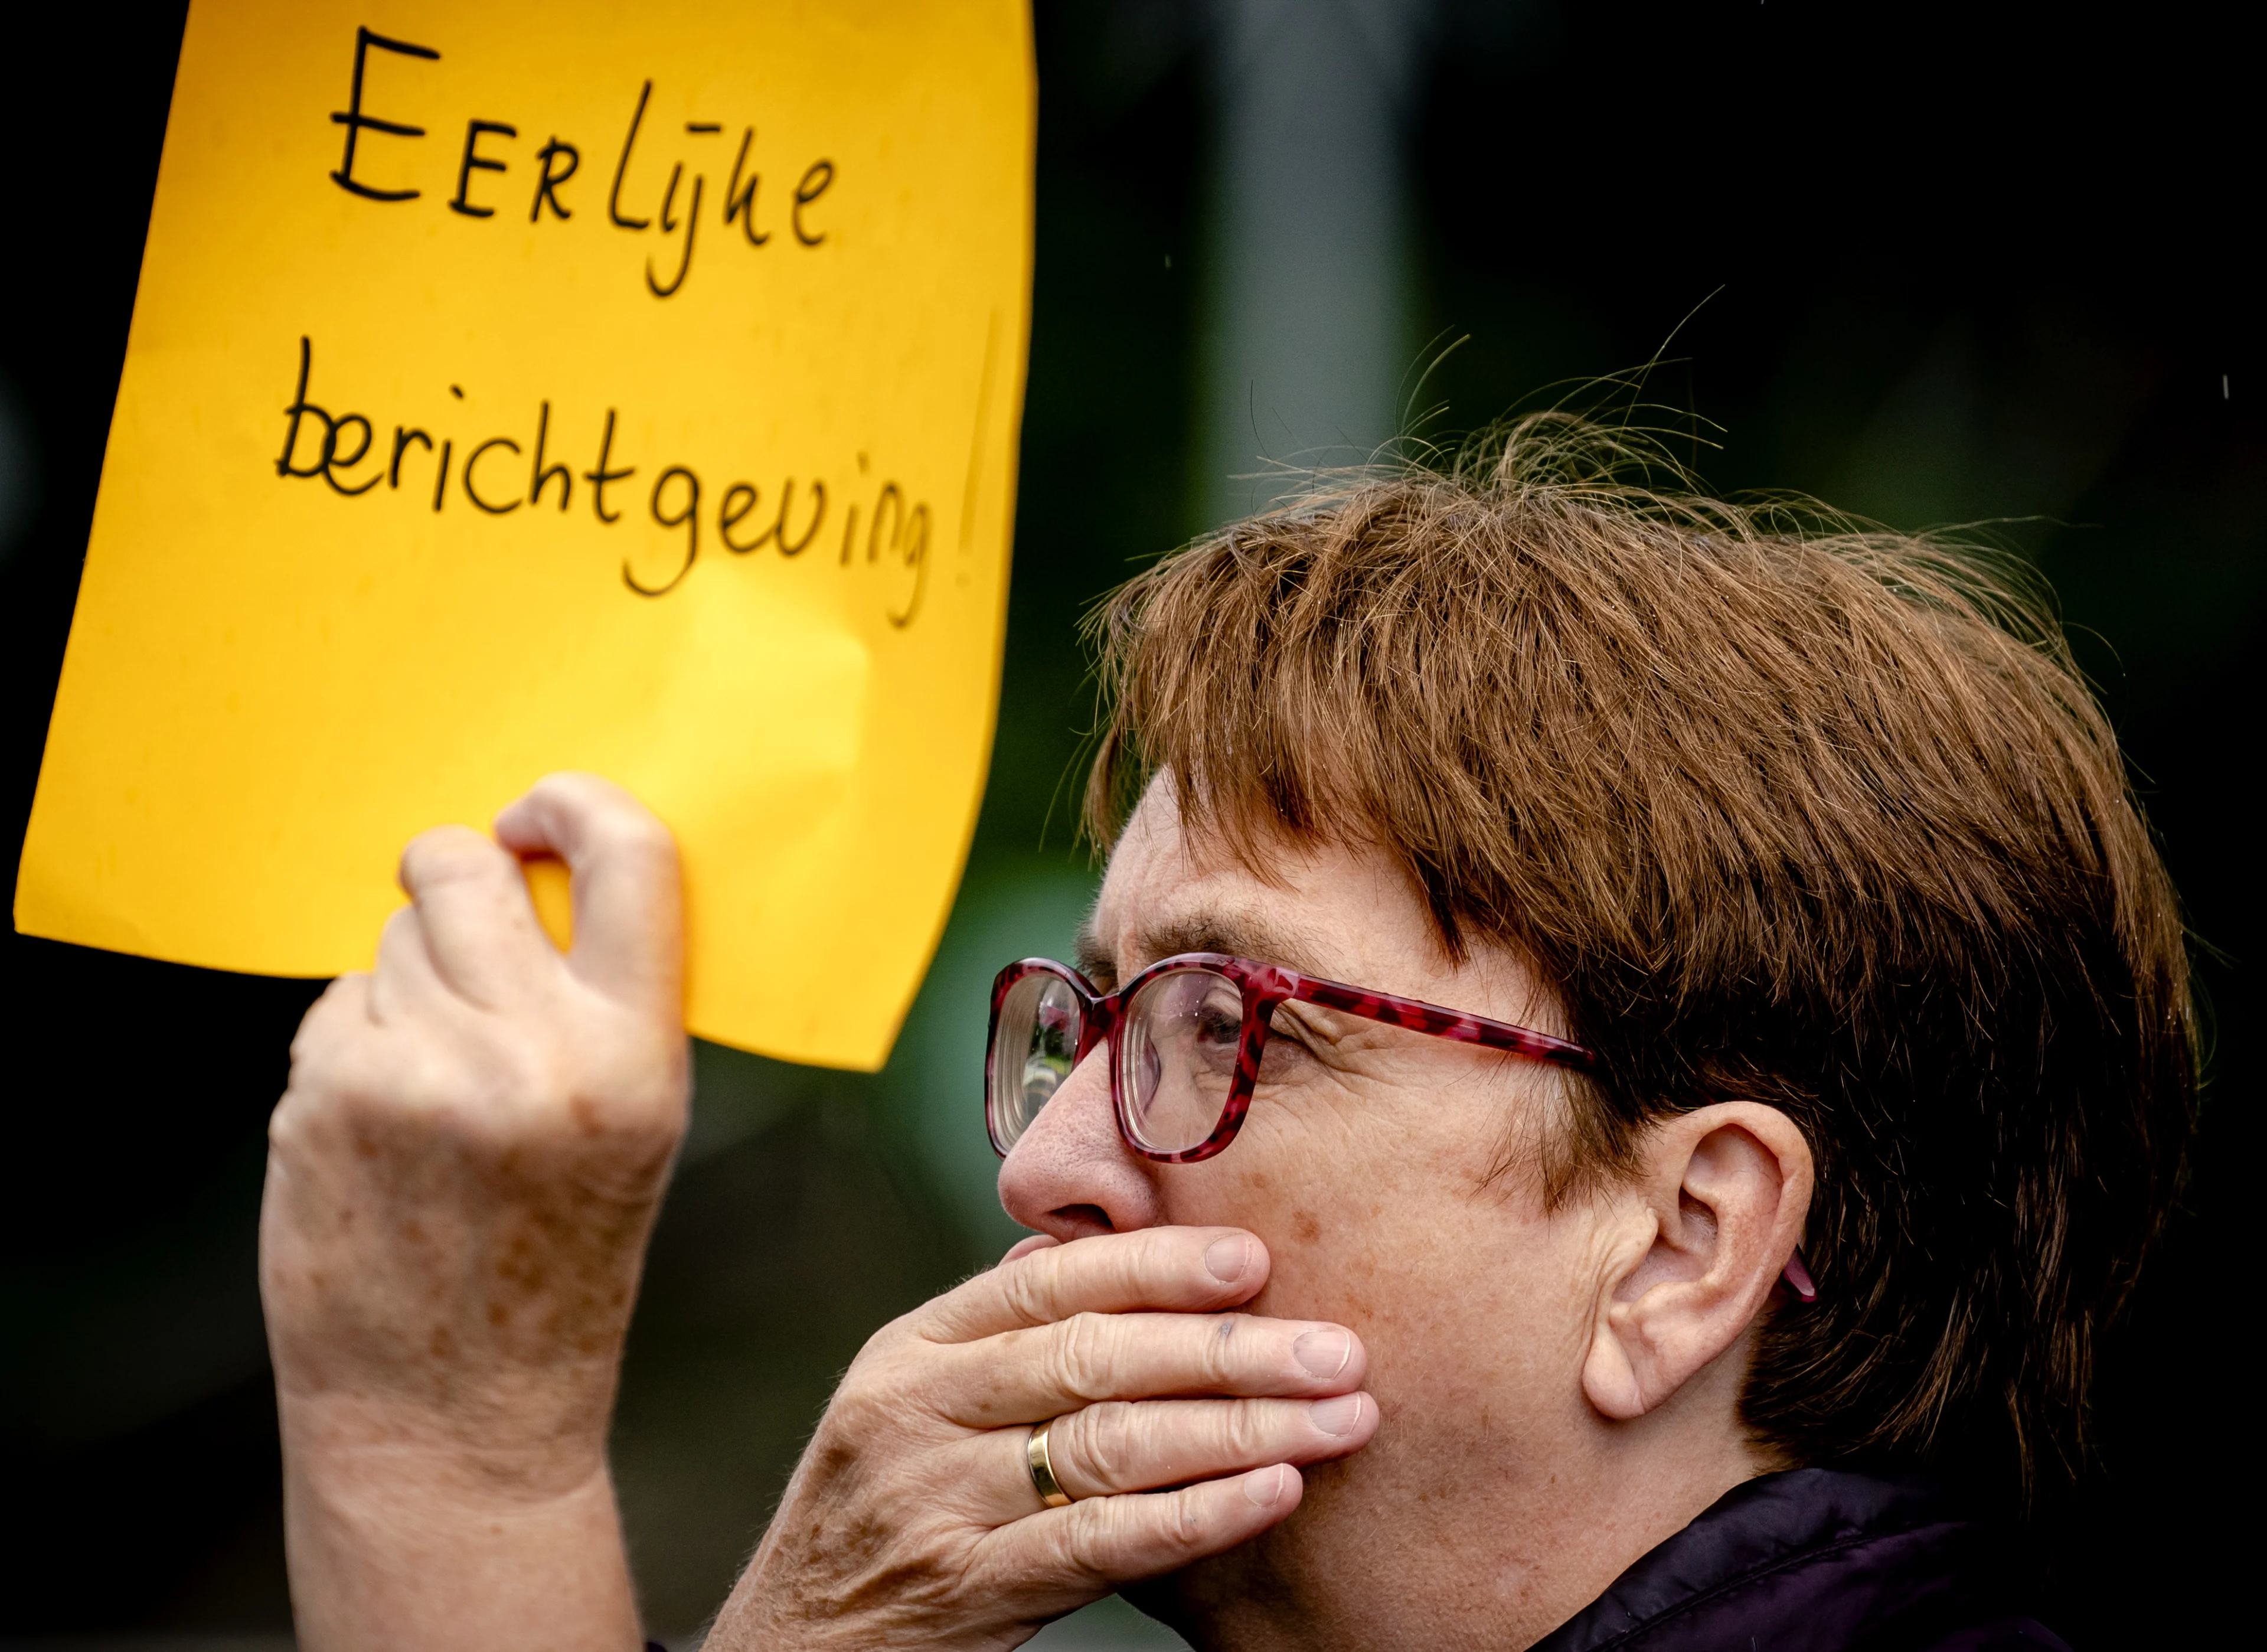 EERlijke
berichtgeving!